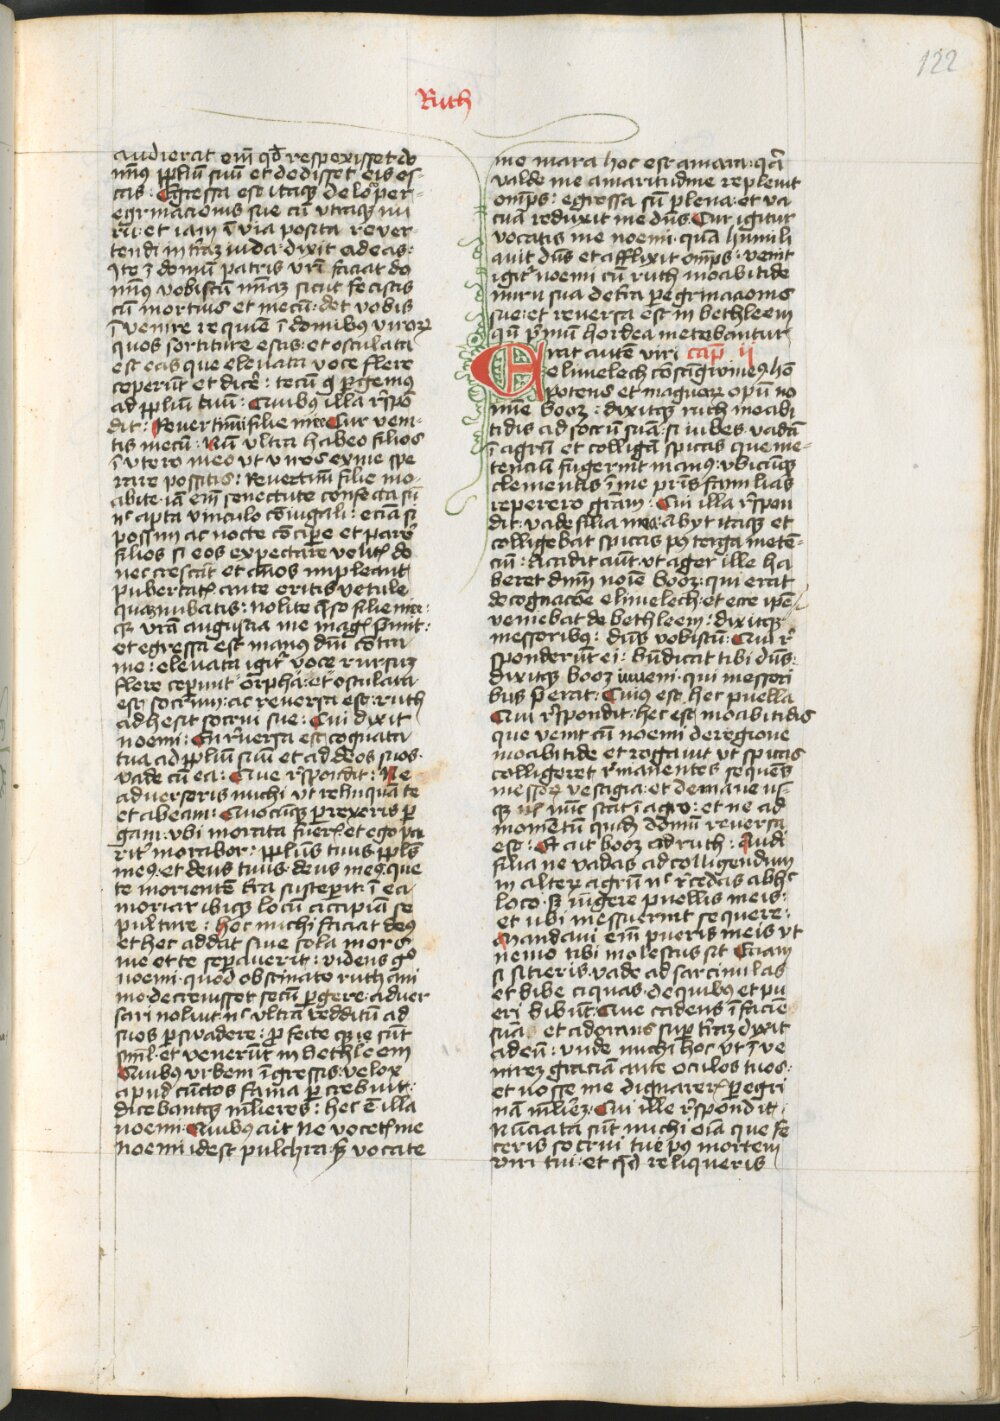 122
Ruth
audierat em̄ qd̄ respexisset do
minꝰ pplm̄ suū et dedisset eis es
cas. Egressa est itaqꝫ de loco per
egrinacionis sue cū vtraqꝫ nu
ru. et iam ī via posita rever
tendi in trāꝫ iuda. dixit ad eas.
Ite ī domū patris vrī. faciat do
minꝰ vobiscū miāꝫ sicut fecistis
cū mortuis et mecū. det vobis
īvenire requiē ī domibꝰ virorꝝ
quos sortiture estis. et osculata
est eas que elevata voce flere
ceperūt et dicē̄. tecū pergemꝰ
ad pplm̄ tuū. Quibꝰ illa rn̄spō
dit. Revertimī filie mee. Cur veni
tis mecū. Nū vltra habeo filios
ī vtero meo vt viros ex me spe
rare possitis. Revertimī filie mo
abite. iā em̄ senectute confecta sū
nc̄ apta vinculo cōiugali. eciā si
possim ac nocte cōcipere et parē
filios si eos expectare velitꝭ do
nec crescāt et ānos impleant
pubertatꝭ ante eritis vetule
quam nubatis. nolite q̄so filie mee.
qꝫ vrā angustia me magꝭ p̄mit.
et egressa est manꝰ dnī cōtra
me. elevata igitꝰ voce rursuꝫ
flere ceperunt. Orpha. et osculata
est socrum. ac reversa est. ruth
adhesit socrui sue. Cui dixit
noemi. En rēversa est cognata
tua ad pplm̄ suū et ad deos suos.
vade cū ea. Que rn̄spondit. Ne
adverseris michi vt relinquā te
et abeam. Quocūqꝫ perrexeris per
gam. vbi morata fuerꝭ et ego pa
ritꝰ morabor. pplūs tuus pplūs
meꝰ. et deus tuus. deus meꝰ. que
te morientē trā susceperit. ī ea
moriar ibiqꝫ locū accipiā se
pulture. Hec michi faciat deꝰ
et hec addat si ne sola mors
me et te seperaverit. videns gͦ
noemi. quod obstinato ruth ani
mo decrevisset secū pergere. adver
sari noluit nc̄ vltra redditū ad
suos perswadere. perfecte qꝫ sūt
siml̄. et venerūt in bethleem
Quibꝰ vrbem īgressis. velox
apud cūctos fama percrebuit.
dicebantqꝫ mlieres. hec ē illa
noemi. Quibꝰ ait ne vocetꝭ me
noemi idest pulchra. sꝫ vocate
me mara hoc est amara. qā
valde me amaritudine replevit
omps̄. egressa sū plena. et va
cuā reduxit me dūs. Cur igitur
vocatis me noemi. quā humili
avit dūs et afflixit omps̄. venit
igitꝰ noemi cū ruth moabitide
nuru sua de trā pegrinacionis
sue. et reversa est in bethleem
qn̄ pͥmū hordea metebantur
Erat autē viri cap̄ ij
elimelech cōsāgwineꝰ hō
potens et magnarꝝ opū no
mine booz. dixitqꝫ ruth moabi
tidis ad socrū suā. si iubes. vadā
ī agrū et colligā spicas que me
tenciū fugerint manꝰ. vbicūqꝫ
clementis ī me pris̄ familias
reperero grām. Cui illa rn̄spon
dit. vade filia mea. abijt itaqꝫ et
colligebat spicas pꝰ terga metē
ciū. Accidit aūt. vt ager ille ha
beret dnm̄ noīe booz. qui erat
de cognacōe elimelech. et ecce ipē
veniebat de bethleem. dixitqꝫ
messoribꝰ. dūs vobiscū. Qui rn̄
sponderūt ei. bn̄dicat tibi dūs.
dixitqꝫ booz iuveni. qui messori
bus p̄erat. Cuiꝰ est hec puella
Cui rn̄spondit. hec est moabitidis
que venit cū noemi de regione
moabitide et rogavit vt spicas
colligeret rēmanentes sequēs
messorꝝ vestigia. et de mane us
qꝫ nūc stat ī agro. et ne ad
momentū quidē domū reversa
est. Et ait booz ad ruth. Audi
filia ne vadas ad colligendum
in alterꝝ agrū nc̄ rēcedas ab hͦ
loco. sꝫ iūgere puellis meis.
et ubi messuerint sequere.
Mandavi em̄ pueris meis vt
nemo tibi molestus sit. Eciam
si sitieris. vade ad sarcinulas
et bibe aquas. de quibꝰ et pu
eri bibūt. Que cadens ī faciē
suā et adorans super trāꝫ dixit
ad eū. unde michi hoc ut īve
nireꝫ graciā ante oculos tuos.
et nosse me dignarerꝭ peregri
nā mlierē. Cui ille rn̄spondit.
Nūciata sūt michi oīa que fe
ceris socrui tue pꝰ mortem
viri tui. et qd̄ reliqueris